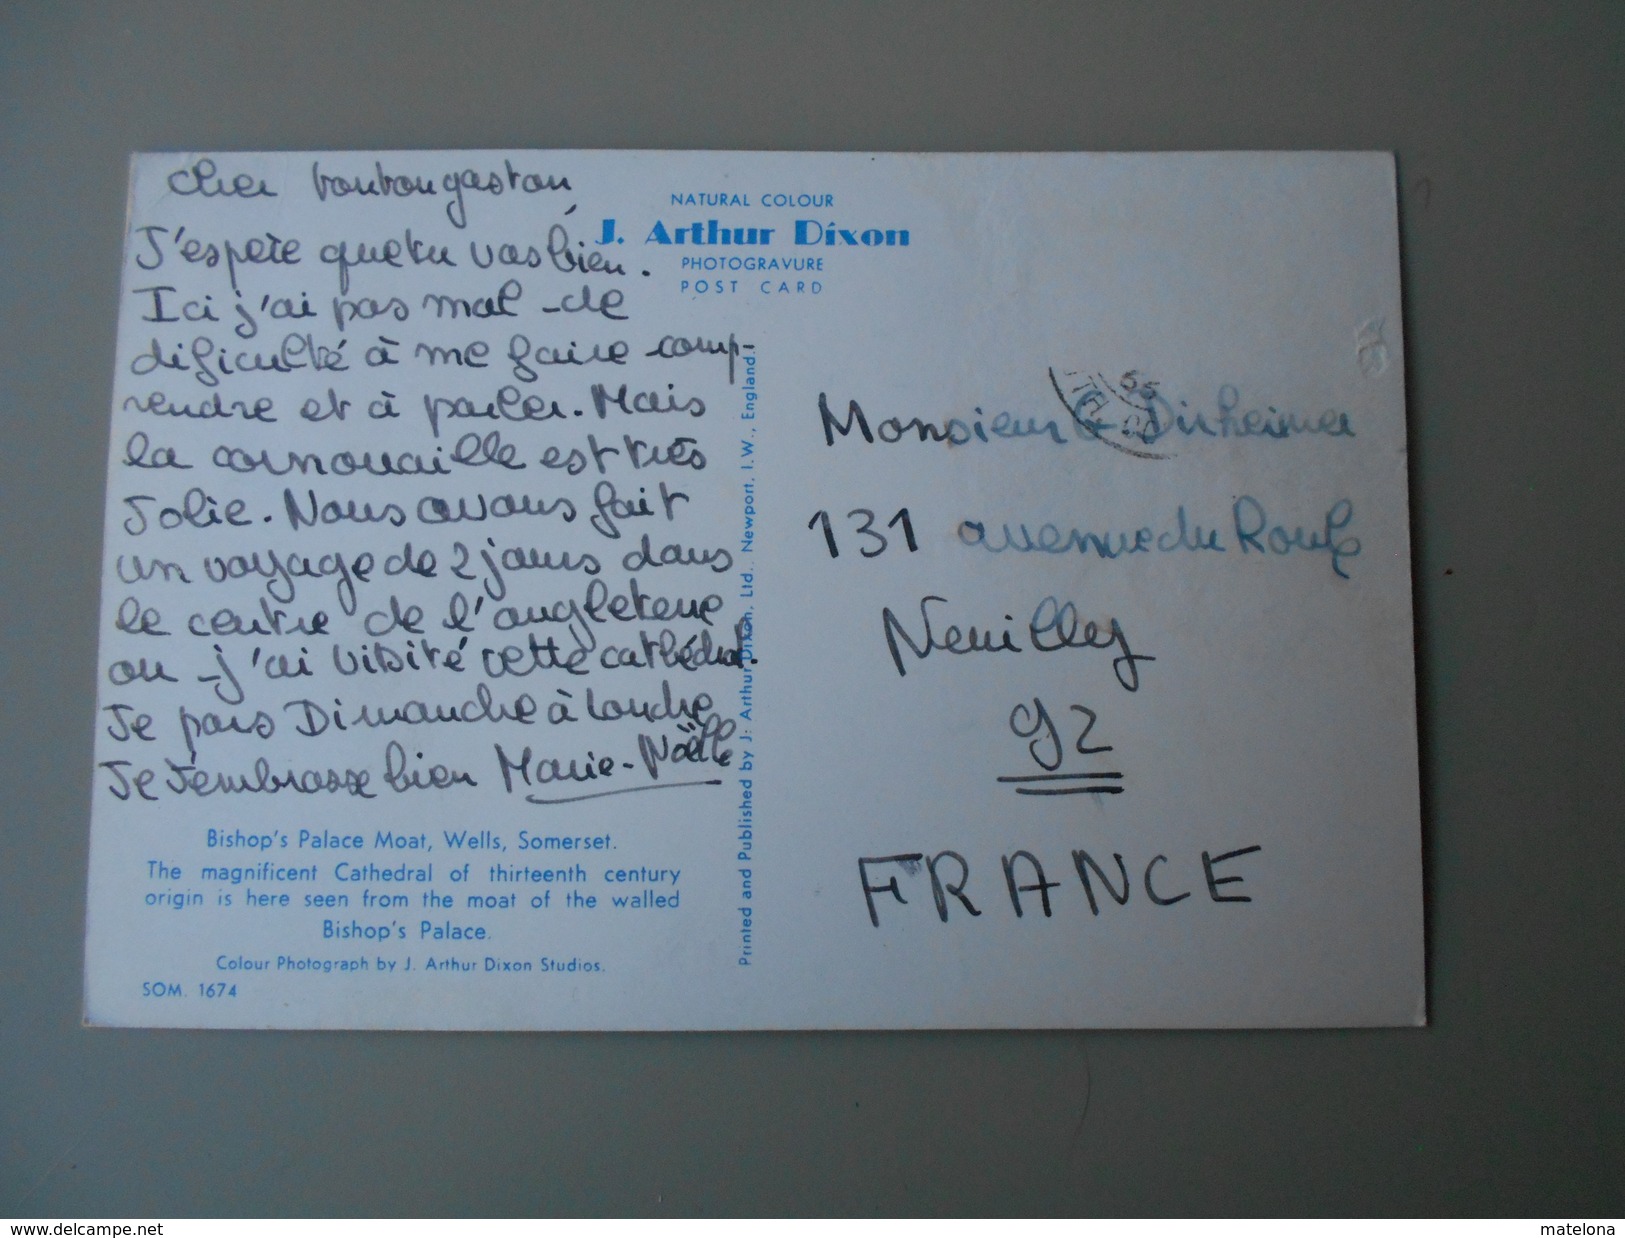 cher bonbongaston
J'espère que tu vas bien.
Ici j'ai pas mal de
dificulté à me faire comp-
rendre et à parler. Mais
la cornouaille est très
Jolie. Nous avons fait
un voyage de 2 jours dans
le centre de l'angleterre
ou j'ai visité cette cathédral.
Je pars Dimanche à Londre
Je t'embrasse bien Marie-Noëlle
Bishop's Palace Moat, Wells, Somerset.
The magnificent Cathedral of thirteenth century
origin is here seen from the moat of the walled
Bishop's Palace.
Colour Photograph by J. Arthur Dixon Studios.
SOM. 1674
NATURAL COLOUR
J. Arthur Dixon
PHOTOGRAVURE
POST CARD
Printed and Published by J. Arthur Dixon, Ltd., Newport, I.W., England.
Monsieur G Dirheimer
131 avenue du Roule
Neuilly
92
FRANCE
www.delcampe.net
matelona